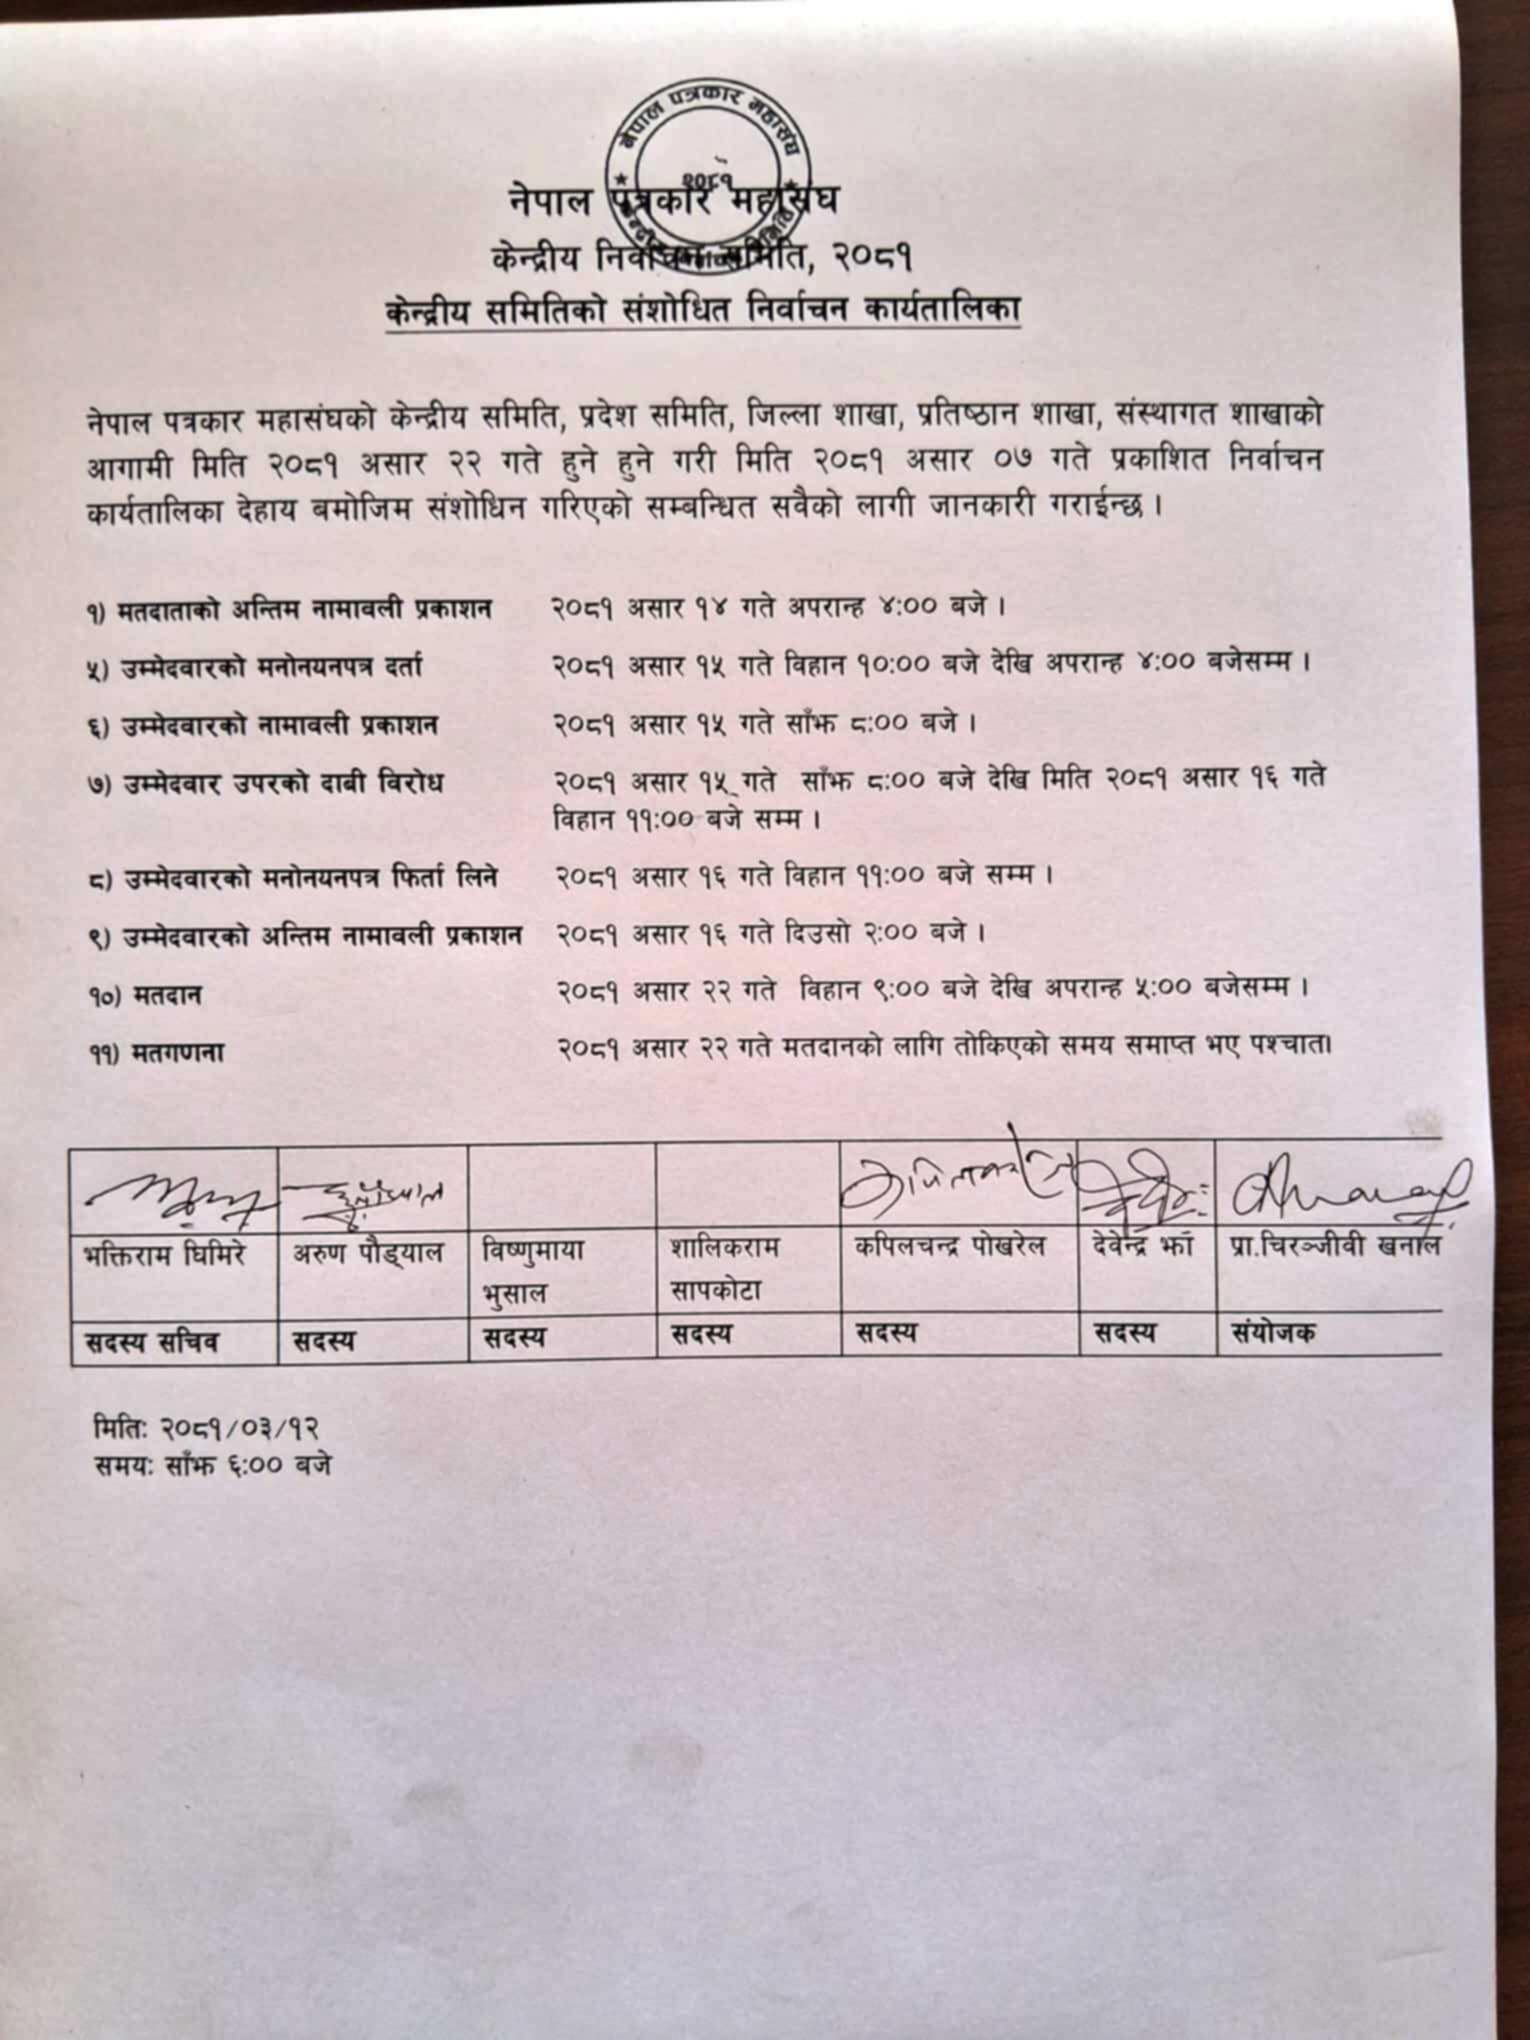 नेपाल पत्रकार महासंघ
२०८१
नेपाल पत्रकार महासंघ
केन्द्रीय निर्वाचन समिति, २०८१
केन्द्रीय समितिको संशोधित निर्वाचन कार्यतालिका
नेपाल पत्रकार महासंघको केन्द्रीय समिति, प्रदेश समिति, जिल्ला शाखा, प्रतिष्ठान शाखा, संस्थागत शाखाको
आगामी मिति २०८१ असार २२ गते हुने हुने गरी मिति २०८१ असार ०७ गते प्रकाशित निर्वाचन
कार्यतालिका देहाय बमोजिम संशोधिन गरिएको सम्बन्धित सवैको लागी जानकारी गराईन्छ ।
१) मतदाताको अन्तिम नामावली प्रकाशन २०८१ असार १४ गते अपरान्ह ४:०० बजे ।
५) उम्मेदवारको मनोनयनपत्र दर्ता २०८१ असार १५ गते विहान १०:०० बजे देखि अपरान्ह ४:०० बजेसम्म ।
६) उम्मेदवारको नामावली प्रकाशन २०८१ असार १५ गते साँझ ८:०० बजे ।
७) उम्मेदवार उपरको दाबी विरोध २०८१ असार १५ गते साँझ ८:०० बजे देखि मिति २०८१ असार १६ गते
विहान ११:०० बजे सम्म ।
८) उम्मेदवारको मनोनयनपत्र फिर्ता लिने २०८१ असार १६ गते विहान ११:०० बजे सम्म ।
९) उम्मेदवारको अन्तिम नामावली प्रकाशन २०८१ असार १६ गते दिउसो २:०० बजे ।
१०) मतदान २०८१ असार २२ गते विहान ९:०० बजे देखि अपरान्ह ५:०० बजेसम्म ।
११) मतगणना २०८१ असार २२ गते मतदानको लागि तोकिएको समय समाप्त भए पश्चात।
भक्तिराम घिमिरे अरुण पौड्याल विष्णुमाया शालिकराम कपिलचन्द्र पोखरेल देवेन्द्र झाँ प्रा.चिरञ्जीवी खनाल
भुसाल सापकोटा
सदस्य सचिव सदस्य सदस्य सदस्य सदस्य सदस्य संयोजक
मिति: २०८१/०३/१२
समय: साँझ ६:०० बजे